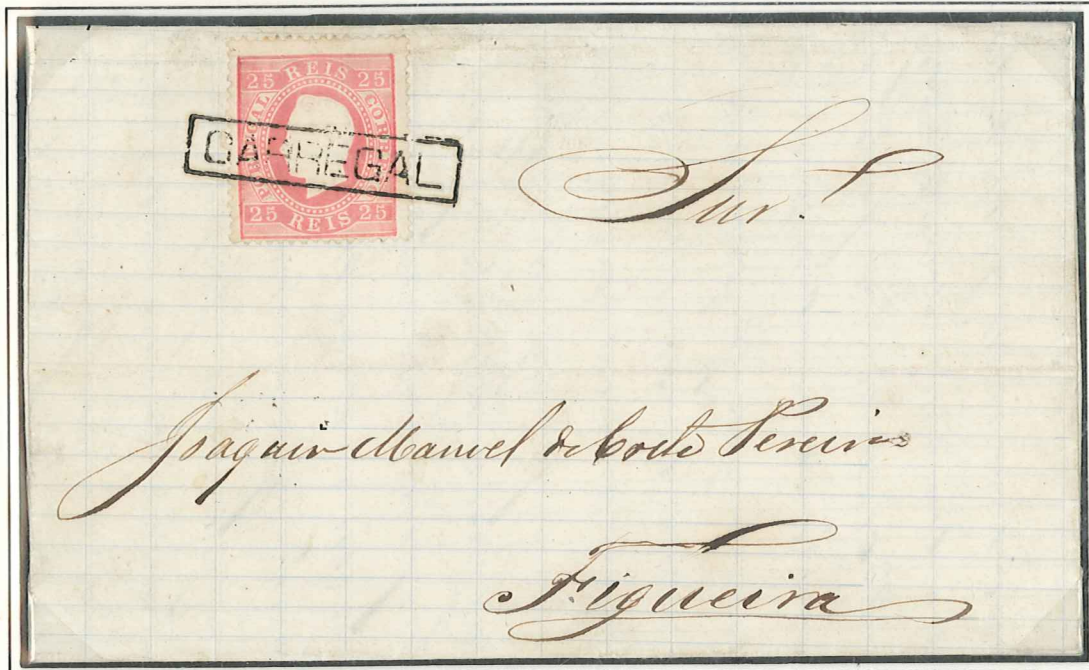 25 REIS 25
PORTUGAL
CORREIO
CARREGAL
25 REIS 25
Snr.
Joaquim Manoel da Costa Pereira
Figueira